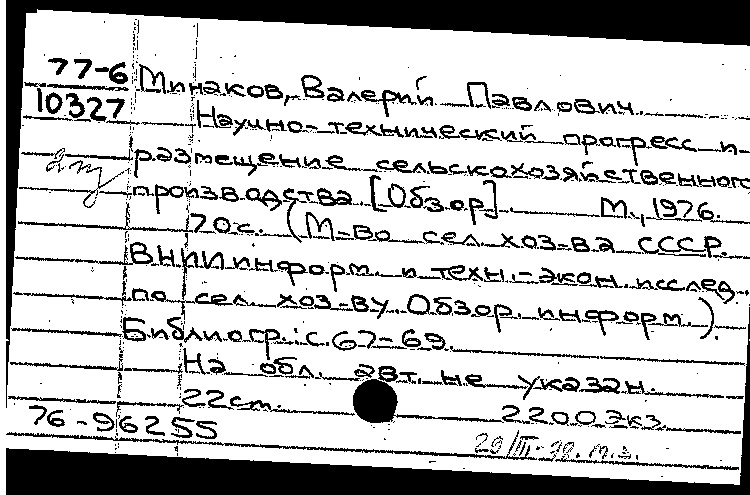 77-6 Минаков, Валерий Павлович.
10327 Научно-технический прогресс и
размещение сельскохозяйственного
производства [Обзор]. М., 1976.
70 с. (М-во сел. хоз-ва СССР.
ВНИИинформ. и техн.-экон. исслед.
по сел. хоз-ву. Обзор. информ.).
Библиогр.: с. 67-69.
На обл. авт. не указан.
22 см. 2200 экз.
76-96255